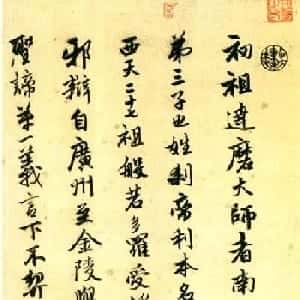 初祖達磨大師者南
第三子也姓刹帝利本名
西天二十七祖般若多羅愛
邪辯自廣州至金陵
聖諦第一義言下不契